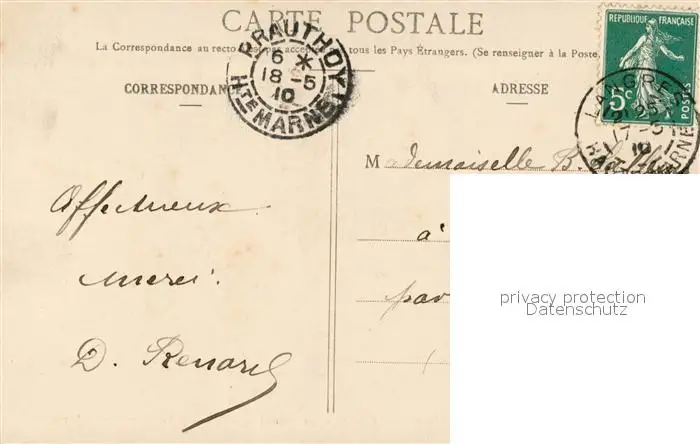 CARTE POSTALE
La Correspondance au recto n'est pas acceptée par tous les Pays Étrangers. (Se renseigner à la Poste.)
CORRESPONDANCE
ADRESSE
PRAUTHOY
6 *
18-5
10
HTE MARNE
RÉPUBLIQUE FRANÇAISE
5c
POSTES
LANGRES
17-5
10
HAUTE MARNE
Mademoiselle B.
à
par
Affectueux
merci.
D. Renard
privacy protection
Datenschutz